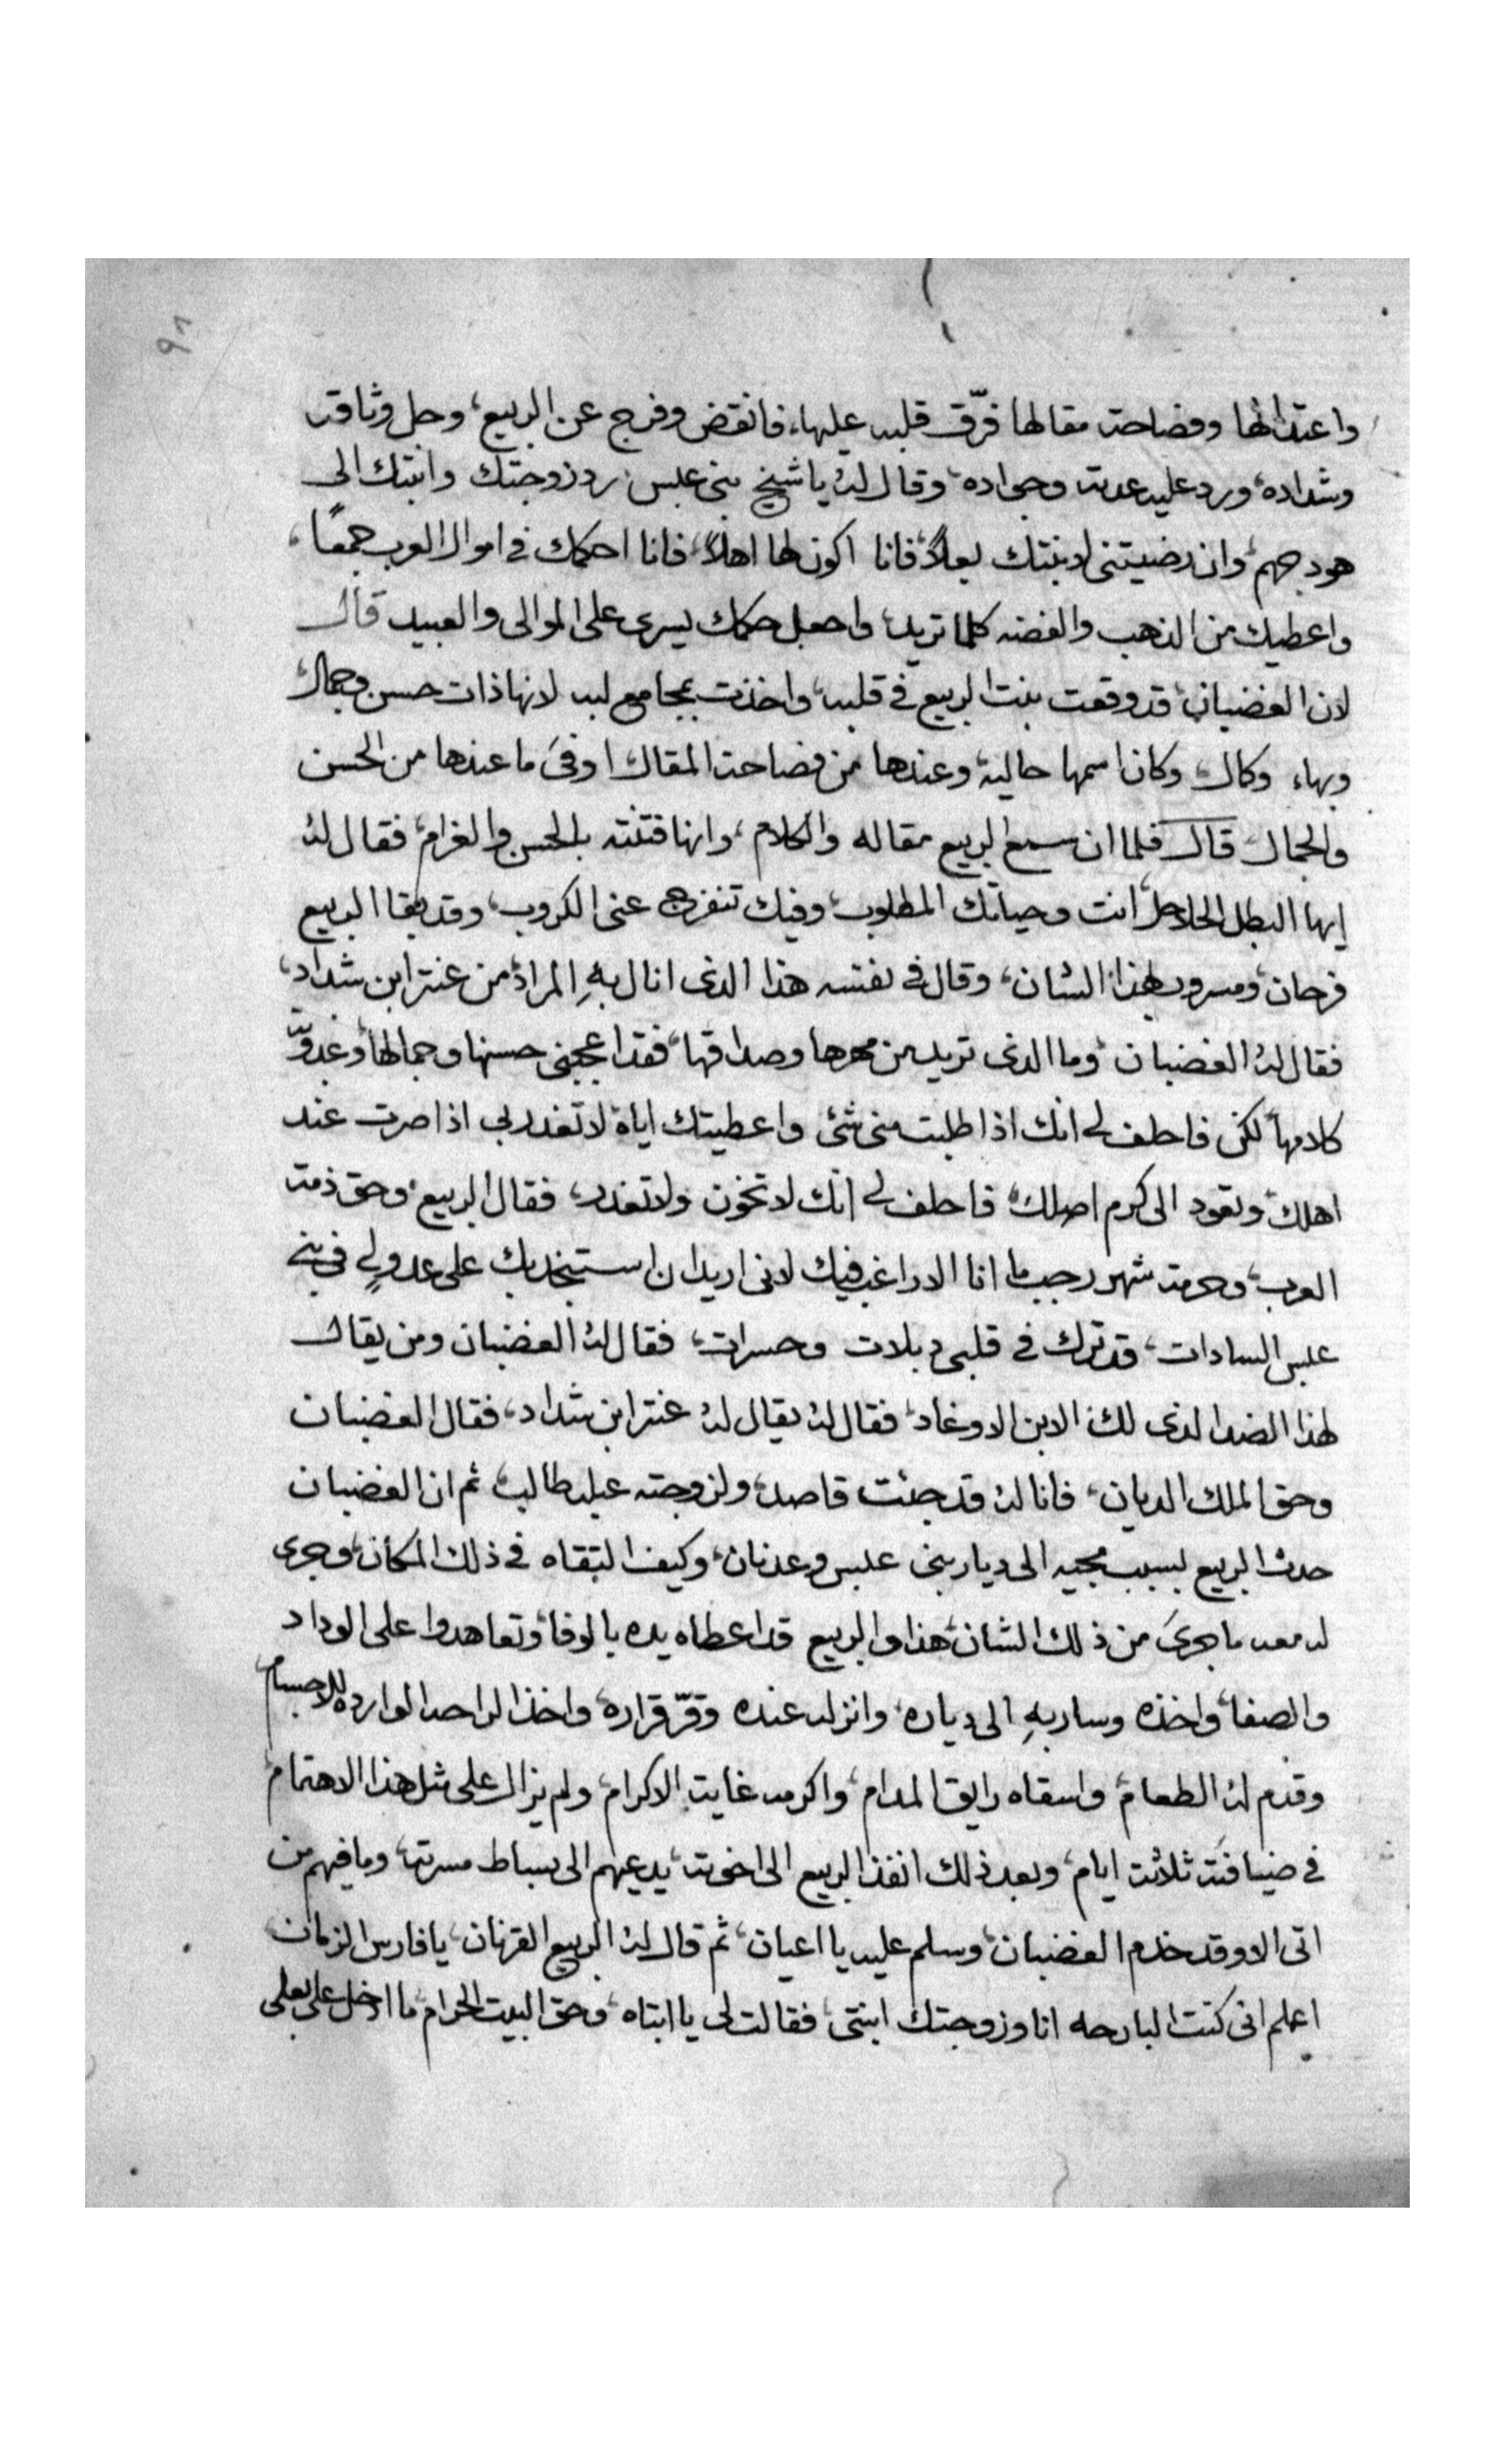 ٩٦
واعتدالها وفصاحت مقالها فرّق قلبه عليها، فانقض وفرج عن الربيع، وحل وثاقه
وشداده، ورد عليه عدته وجواده، وقال له يا شيخ بنى عبس رد زوجتك وابنتك الى
هودجهم، وان رضيتنى لابنتك بعلاً، فانا اكون لها اهلاً، فانا احكمك فى اموال العرب جمعًا،
واعطيك من الذهب والفضه كلما تريد، واجعل حكمك يسرى على الموالى والعبيد قال
لان الغضبان، قد وقعت بنت الربيع فى قلبه، واخذت بمجامع لبه لانها ذات حسن وجمال،
وبهاء وكمال، وكان اسمها حاليه، وعندها من فصاحة المقال اوفىَ ما عندها من الحسن
والجمال قال فلما ان سمع الربيع مقاله والكلام، وانها فتنته بالحسن والغرام، فقال له
ايها البطل الحلاحل، انت وحياتك المطلوب، وفيك تنفرج عنى الكروب، وقد بقا الربيع
فرحان، ومسرور بهذا الشان، وقال فى نفسه هذا الذى انال بهِ المراد، من عنتر ابن شداد،
فقال له الغضبان، وما الذى تريد من مهرها وصداقها، فقد اعجبنى حسنها وجمالها، وعدوّ
كلامها، لكن فاحلف لى انك اذا طلبت منى شئ واعطيتك اياة لا تغدر بى اذا صرت عند
اهلك، وتعود الى كرم اصلك، فاحلف لى انك لا تخون ولا تغدر، فقال الربيع، وحق ذمة
العرب، وحرمة شهر رجب ما انا الا راغب فيك لانى اريد ان استنجد بك على عدو لى فى بنى
عبس السادات، قد ترك فى قلبى دبلات وحسرات، فقال له الغضبان ومن يقال
لهذا الضد الذى لك الابن الاوغاد، فقال له يقال له عنتر ابن شداد، فقال الغضبان
وحق الملك الديان، فانا له قد جئت قاصد، ولزوجته عبله طالب، ثم ان الغضبان
حدث الربيع بسبب مجيه الى ديار بنى عبس وعدنان، وكيف التقاه فى ذلك المكان، وجرى
له معه ما جرىَ من ذلك الشان، هذا والربيع قد اعطاه يده بالوفا، وتعاهدوا على الوداد
والصفا، واخذه وسار بهِ الى دياره، وانزله عنده وقرّ قراره، واخذ الراحه الوارده للاجسام
وقدم له الطعام، واسقاه رايق المدام، واكرمه غايت الاكرام، ولم يزال على مثل هذا الاهتمام
فى ضيافته ثلاثت ايام، وبعد ذلك انفذ الربيع الى اخوته، يدعيهم الى بساط مسرته، وما فيهم من
اتى الا وقد خدم الغضبان، وسلم عليه يا اعيان، ثم قال له الربيع القرنان، يا فارس الزمان،
اعلم انى كنت البارحه انا وزوجتك ابنتى، فقالت لى يا ابتاه، وحق البيت الحرام، ما ادخل على بعلى